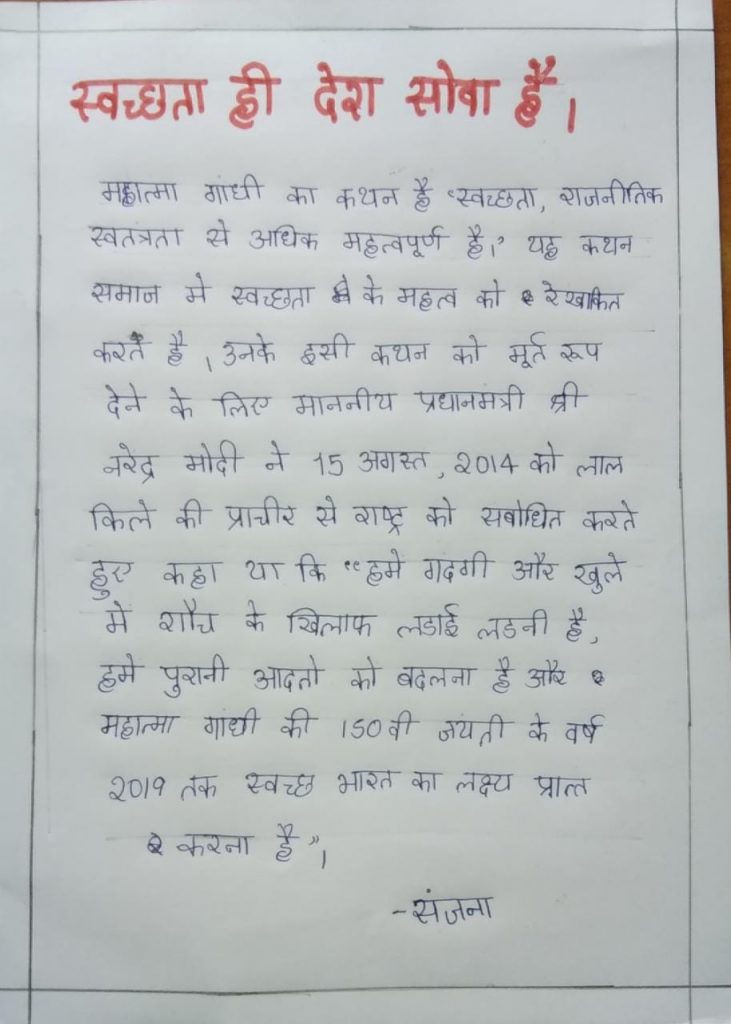 स्वच्छता ही देश सोवा है।
महात्मा गांधी का कथन है "स्वच्छता, राजनीतिक
स्वतंत्रता से अधिक महत्वपूर्ण है।" यह कथन
समाज मे स्वच्छता के महत्व को रेखाकित
करते है। उनके इसी कथन को मूर्त रूप
देने के लिए माननीय प्रधानमत्री श्री
नरेद्र मोदी ने 15 अगस्त, 2014 को लाल
किले की प्राचीर से राष्ट्र को सबोधित करते
हुए कहा था कि "हमे गदगी और खुले
मे शौच के खिलाफ लडाई लडनी है,
हमे पुरानी आदतो को बदलना है और
महात्मा गांधी की 150वी जयंती के वर्ष
2019 तक स्वच्छ भारत का लक्ष्य प्राप्त
करना है"।
-संजना